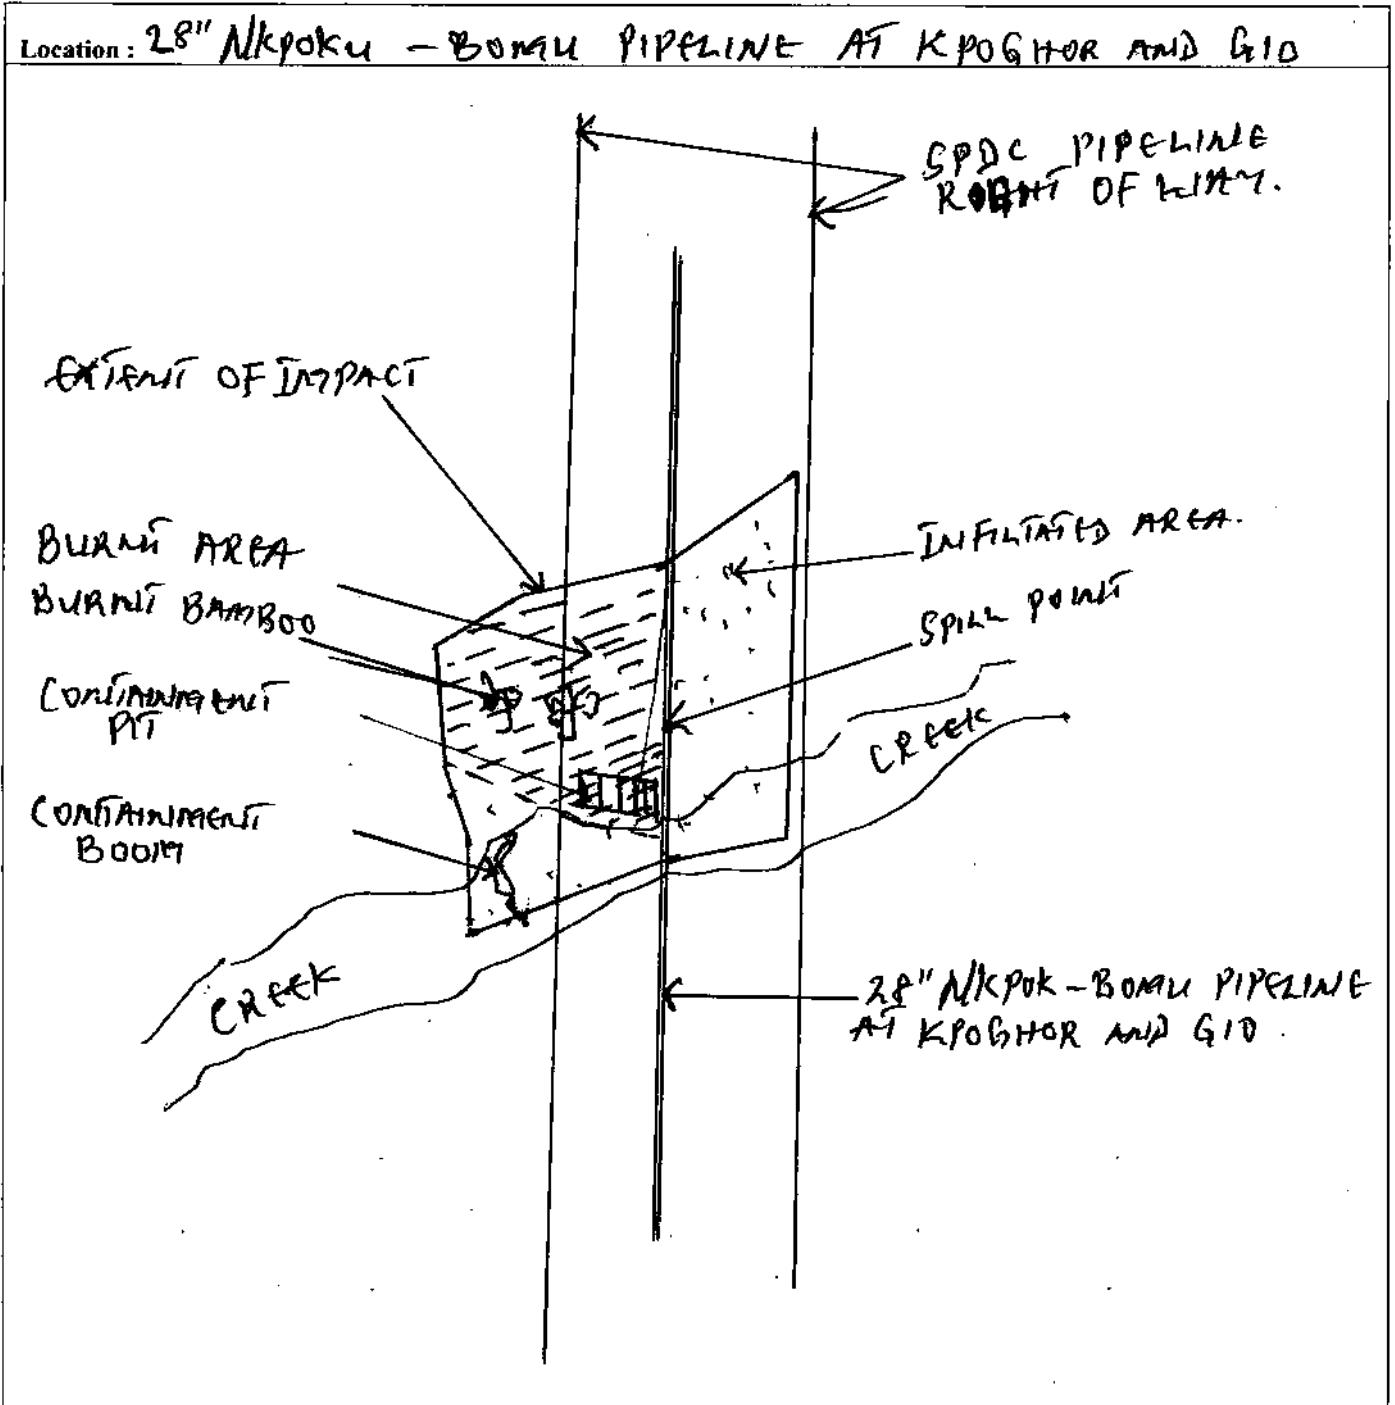 Location : 28" Nkpoku - BOMU PIPELINE AT KPOGHOR AND GIO
SPDC PIPELINE
RIGHT OF WAY.
EXTENT OF IMPACT
BURNT AREA
BURNT BAMBOO
CONTAINMENT
PIT
CONTAINMENT
BOOM
INFILTATED AREA.
SPILL POINT
CREEK
CREEK
28" NKPOK - BOMU PIPELINE
AT KPOGHOR AND GIO.